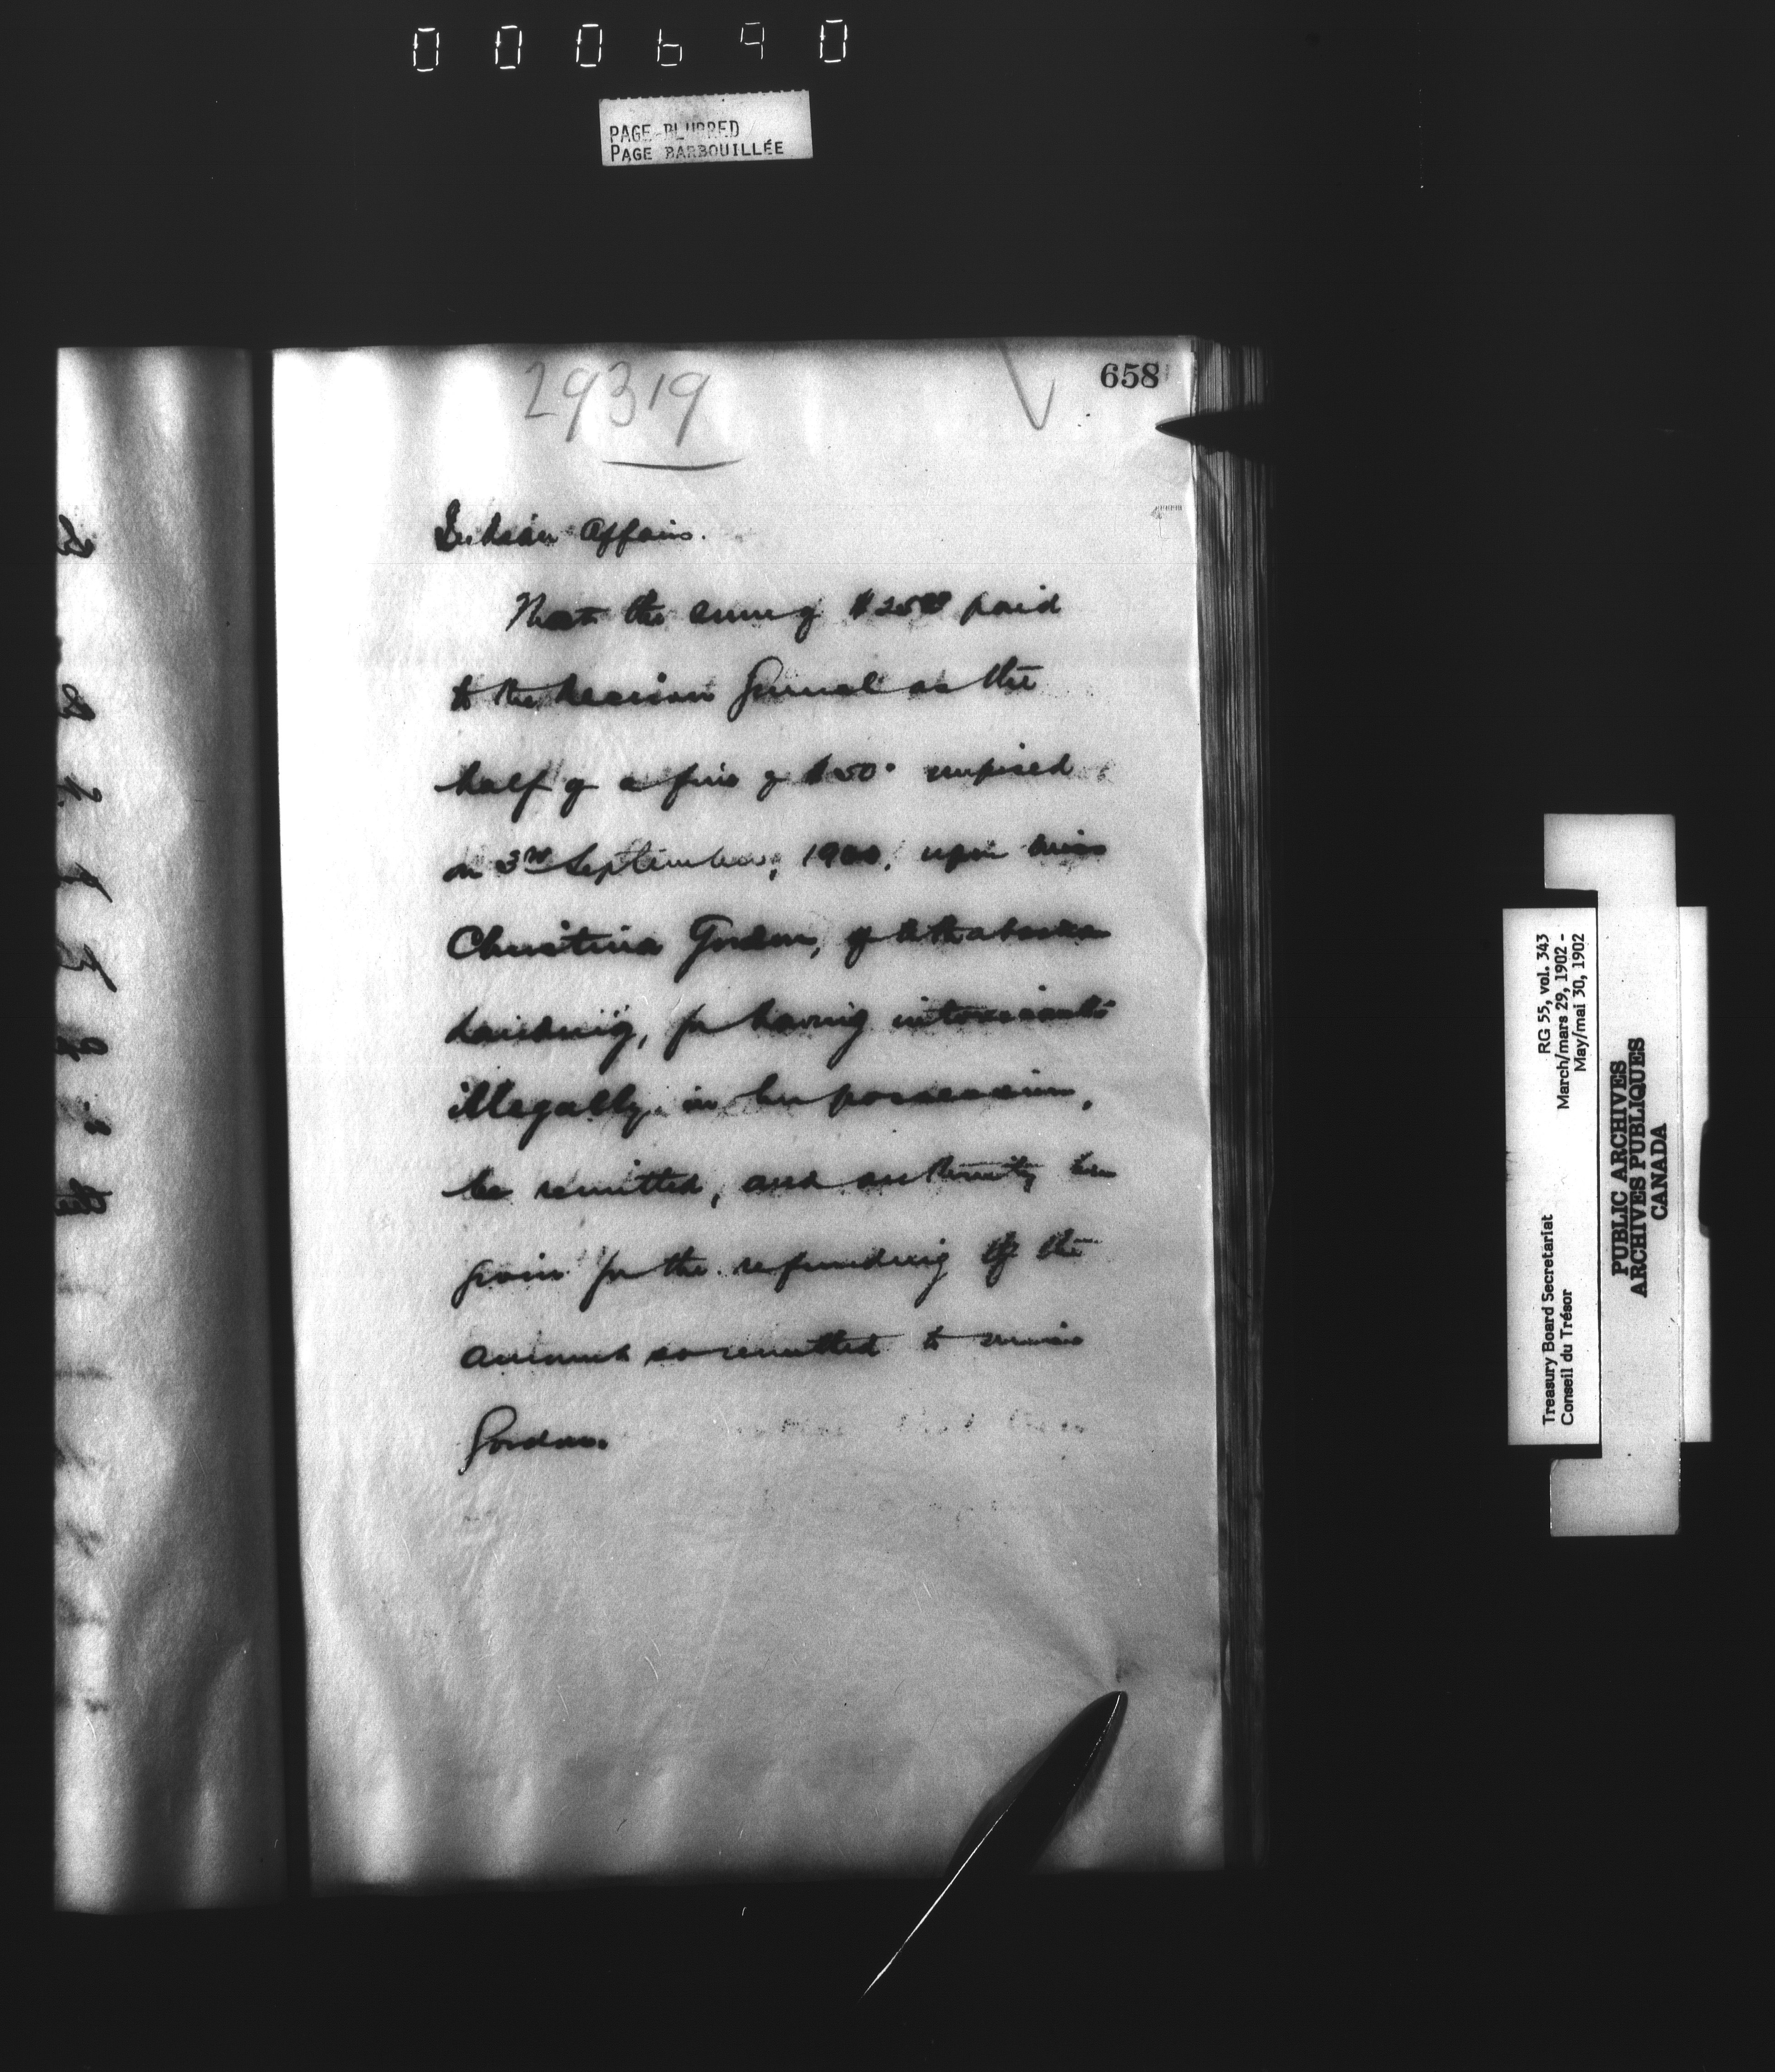 000690
PAGE BLURRED
PAGE BARBOUILLÉE
658
29319
Indian Affairs.
That the sum of $25.00 paid
to the Receiver General as the
half of a fine of $50. imposed
on 3rd September, 1900, upon Miss
Christina Gordon, of Athabasca
Landing, for having intoxicants
illegally in her possession,
be remitted, and authority be
given for the refunding of the
amount so remitted to Miss
Gordon.
RG 55, vol. 343
March/mars 29, 1902 -
May/mai 30, 1902
Treasury Board Secretariat
Conseil du Trésor
PUBLIC ARCHIVES
ARCHIVES PUBLIQUES
CANADA